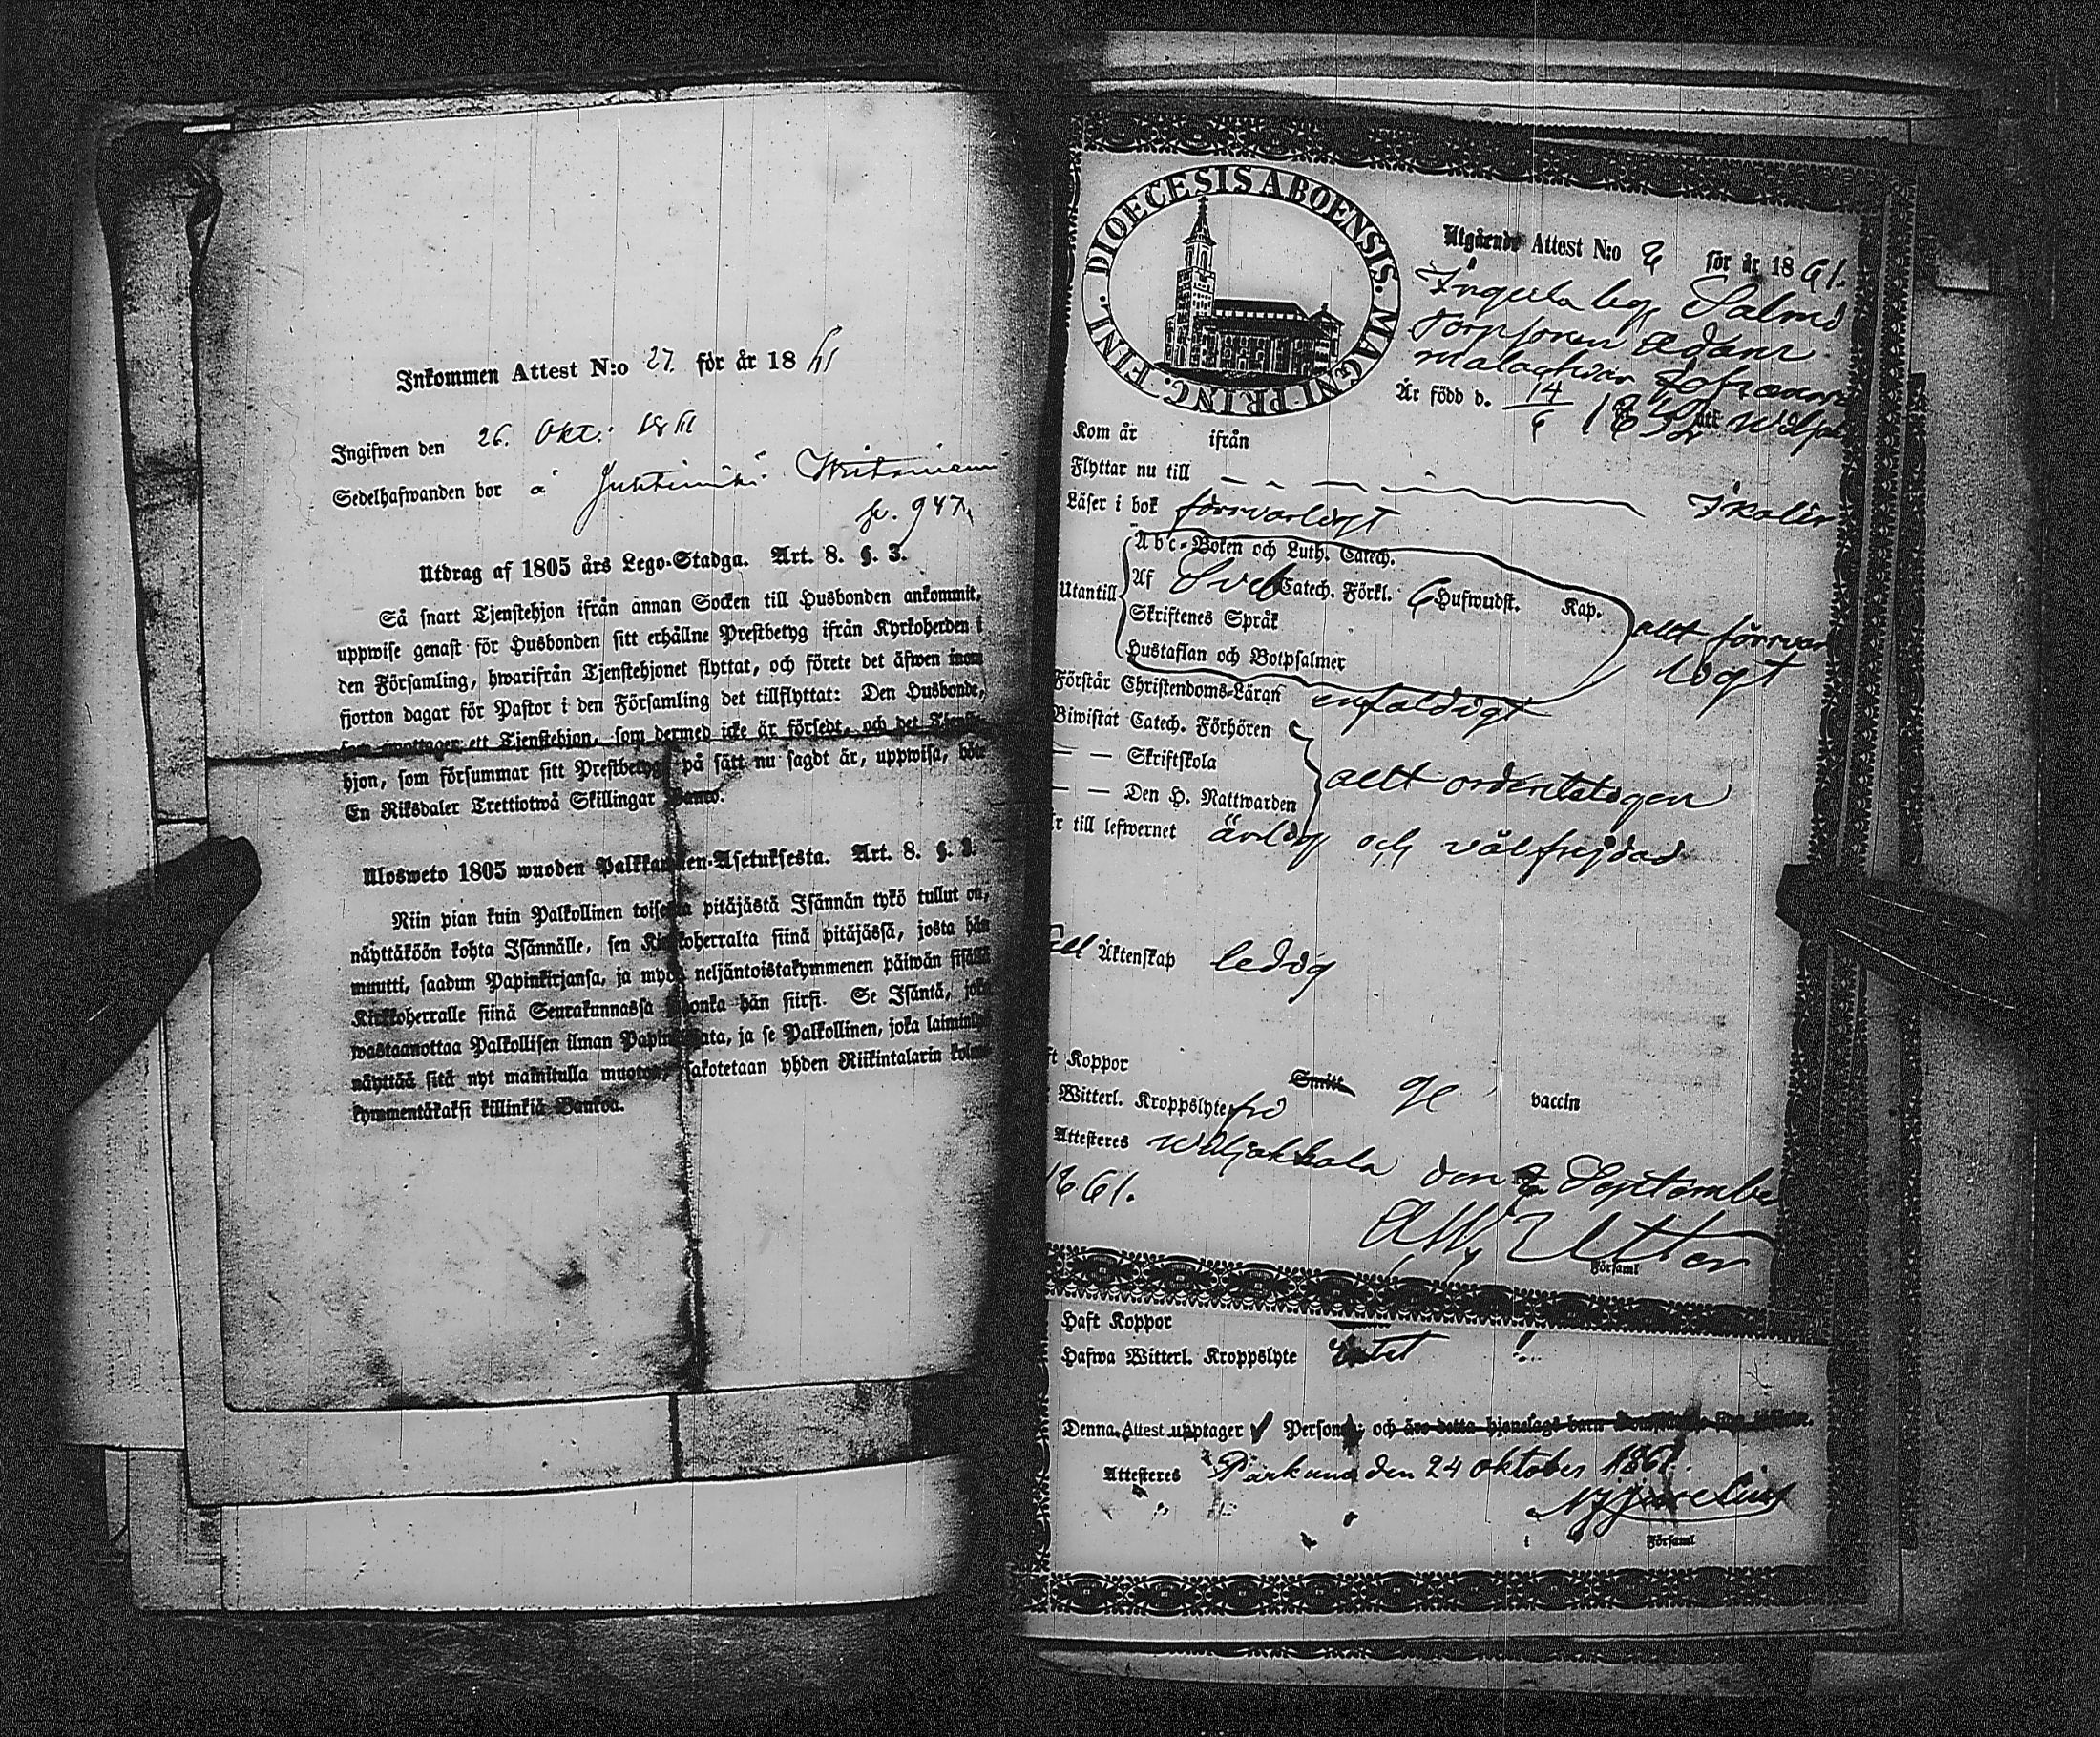 Inkommen Attest N:o 27. för år 1861
Ingifwen den 26. Okt. 1861
Sedelhafwanden bor å
p. 947.
Utdrag af 1805 års Lego-Stadga. Art. 8. §. 3.
Så snart Tjenstehjon ifrån annan Socken till Husbonden ankommit,
uppwise genast för Husbonden sitt erhållne Prestbetyg ifrån Kyrkoherden i
den Församling, hwarifrån Tjenstehjonet flyttat, och förete det äfwen inom
fjorton dagar för Pastor i den Församling det tillflyttat: Den Husbonde,
som emottager ett Tjenstehjon, som dermed icke är försedt, och det Tjenste-
hjon, som försummar sitt Prestbetyg på sätt nu sagdt är, uppwisa, böte
En Riksdaler Trettiotwå Skillingar Banco.
Ulosweto 1805 wuoden Palkkawäen-Asetuksesta. Art. 8. §. 3.
Niin pian kuin Palkollinen toisesta pitäjästä Isännän tykö tullut on,
näyttäköön kohta Isännälle, sen Kirkkoherralta siinä pitäjässä, josta hän
muutti, saadun Papinkirjansa, ja myös neljäntoistakymmenen päiwän sisällä
Kirkkoherralle siinä Seurakunnassa jhonka hän siirsi. Se Isäntä, joka
wastaanottaa Palkollisen ilman Papinkirjata, ja se Palkollinen, joka laiminlyö
näyttää sitä nyt mainitulla muotoa, sakotetaan yhden Riikintalarin kolme-
kymmentäkaksi killinkiä Bankoa.
DIOECESIS ABOENSIS. MAGNI PRINC. FINL.
Utgående Attest N:o för år 1861.
Är född d. 14/6
Kom år ifrån
Flyttar nu till Ikalis
Läser i bok försvarligt
Abc-Boken och Luth. Catech.
Utantill Af Sveb Catech. Förkl. 6 Hufwudst. Kap. allt försvar
Skriftenes Språk ligt
Hustaflan och Botpsalmer
Förstår Christendoms-Läran enfaldigt
Biwistat Catech. Förhören
— — Skriftskola allt ordenteligen
— — Den H. Nattwarden
är till lefwernet ärlig och välfrejdad
till Äktenskap ledig
ft Koppor Smitt vaccin
Witterl. Kroppslyte fri
Attesteres Wiljakkala den September
1861.
Församl
Haft Koppor
Hafwa Witterl. Kroppslyte
Denna Attest upptager 1 Person; och äro detta hjonelags barn
Attesteres Parkano den 24 oktober 1861.
Församl